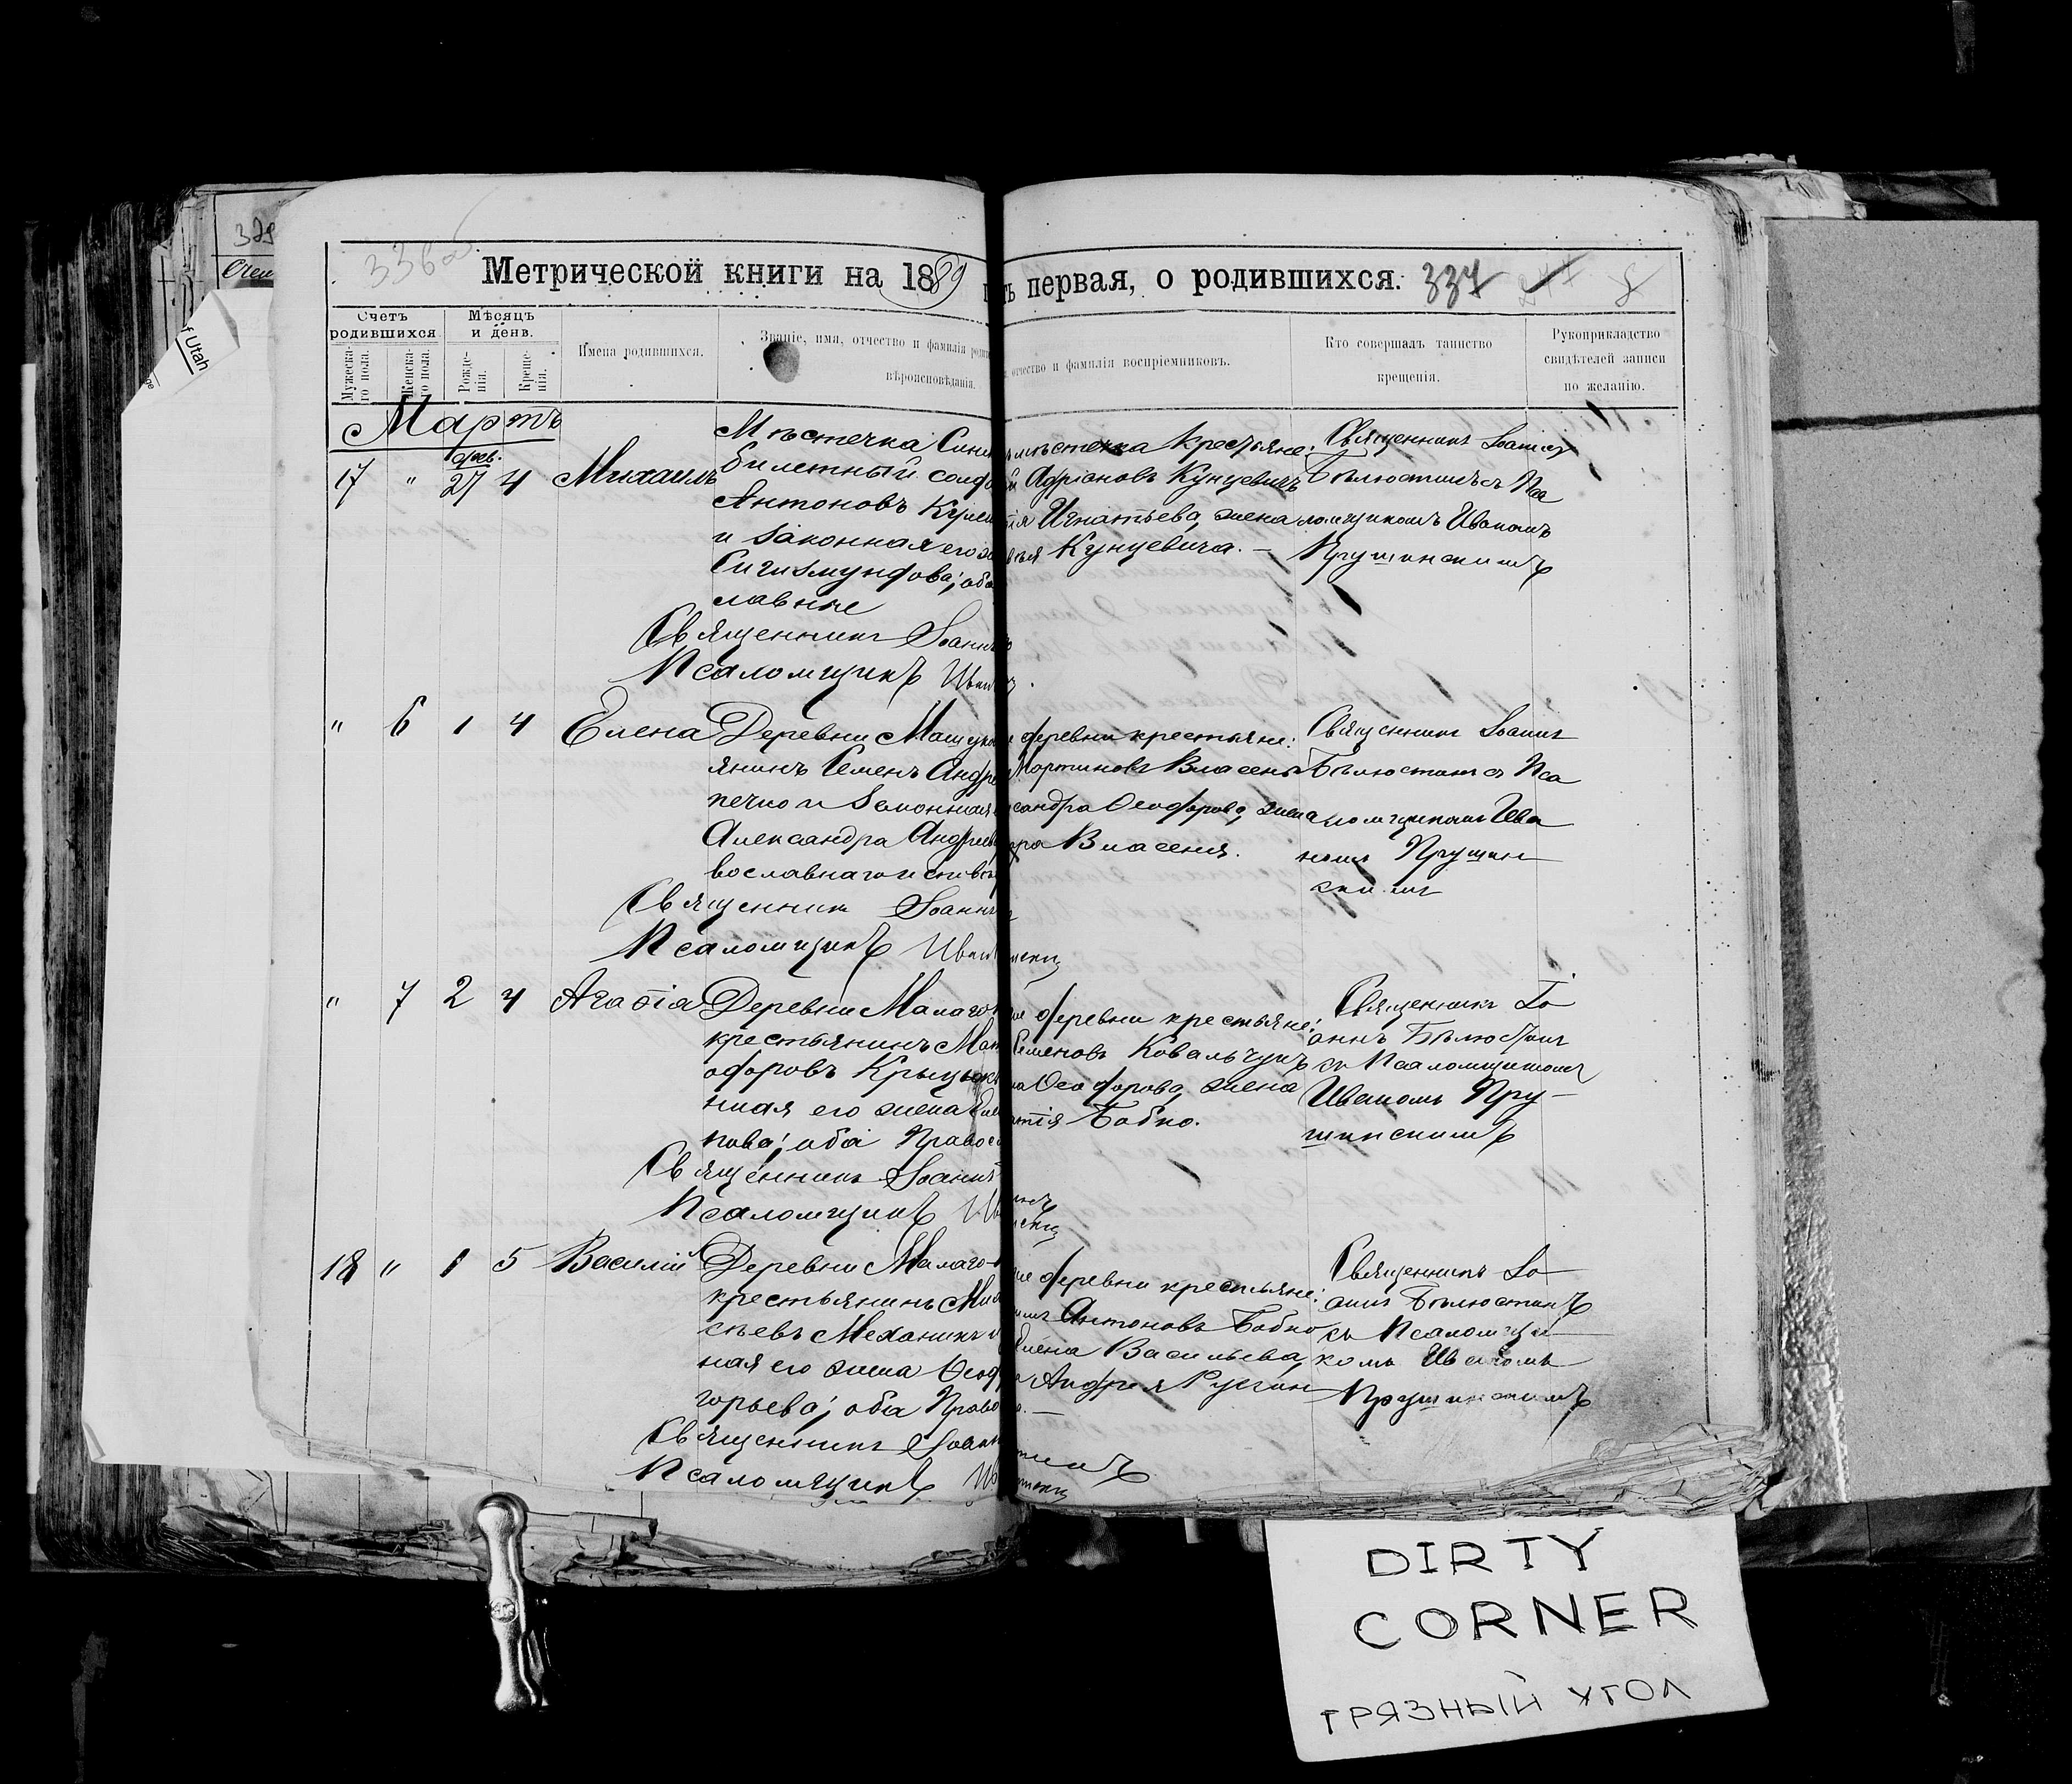 336об
Метрической книги на 1889
ть первая, о родившихся.
337
Счетъ родившихся
Мѣсяцъ и денв.
Мужеска-го пола.
Женска-го пола.
Рожде-нія.
Креще-нія.
Имена родившихся.
Званіе, имя, отчество и фамилія роди
вѣроисповѣданія.
отчество и фамилія воспріемниковъ.
Кто совершалъ таинство
крещенія.
Рукоприкладство
свидѣтелей записи
по желанію.
Мартъ
17 " фев. 27 4 Михаилъ
Мѣстечка Сине
билетный солда
Антоновъ
и законная его ж
Сигизмундова; оба
славные
Священникъ Іоаннъ
Псаломщикъ Иван
мѣстечка крестьяне:
й Адріановъ Кунцевичъ
Игнатьева, жена
Кунцевича. —
Священникъ Іоаннъ
Бѣлюстинъ съ Пса
ломщикомъ Иваномъ
Прушинскимъ
" 6 1 4 Елена
Деревни Машуко
янинъ Семенъ Андре
печко и законная
Александра Андреев
вославнаго исповѣ
Священникъ Іоаннъ
Псаломщикъ Иван
деревни крестьяне:
Мартиновъ Власеня
сандра Ѳеодорова, жена
ра Власеня.
Священникъ Іоаннъ
Бѣлюстинъ съ Пса
ломщикомъ Ива
номъ Прушин
скимъ
" 7 2 4 Агаѳія
Деревни Малаго
крестьянинъ Мат
одоровъ
нная его жена Еле
пова; оба Правос
Священникъ Іоаннъ
Псаломщикъ Ив
деревни крестьяне:
Семеновъ Ковальчукъ
на Ѳеодорова, жена
Бобко.
Священникъ Іо
аннъ Бѣлюстинъ
съ Псаломщикомъ
Иваномъ Пру-
шинскимъ
18 " 1 5 Василій
Деревни Малаго-
крестьянинъ Ми
сѣевъ Механикъ и
ная его жена Ѳеод
горьева; оба Право
Священникъ Іоанн
Псаломщикъ Ив
деревни крестьяне:
Антоновъ Бобко
Елена Васильева,
Андрея Русин
тинъ
Священникъ Іо
аннъ Бѣлюстинъ
съ Псаломщи-
комъ Иваномъ
Прушинскимъ
f Utah
DIRTY
CORNER
ГРЯЗНЫЙ УГОЛ